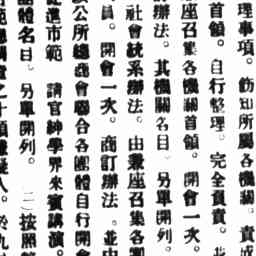 理事項。飭知所屬各機關。責成
首領。自行整理。完全負責。
座召集各機關首領。開會一次。
訂辦法。其機關名目。另單開列。
社會統系辦法。由兼座召集各
員。開會一次。商訂辦法。並由
公所總商會聯合各團體自行開會
進市範 請官紳學界來賓講演。
體名目。另單開列。 二)按照